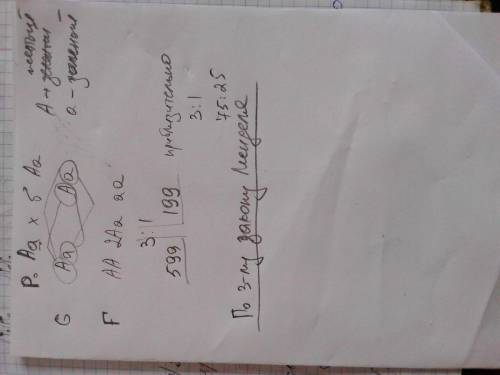 P. Aa x ♂ Aa
A - жёлтый
a - зелёный
G Aa Aa
F AA 2Aa aa
3:1
599 | 199 приблизительно
3:1
75:25
По 3-му закону Менделя